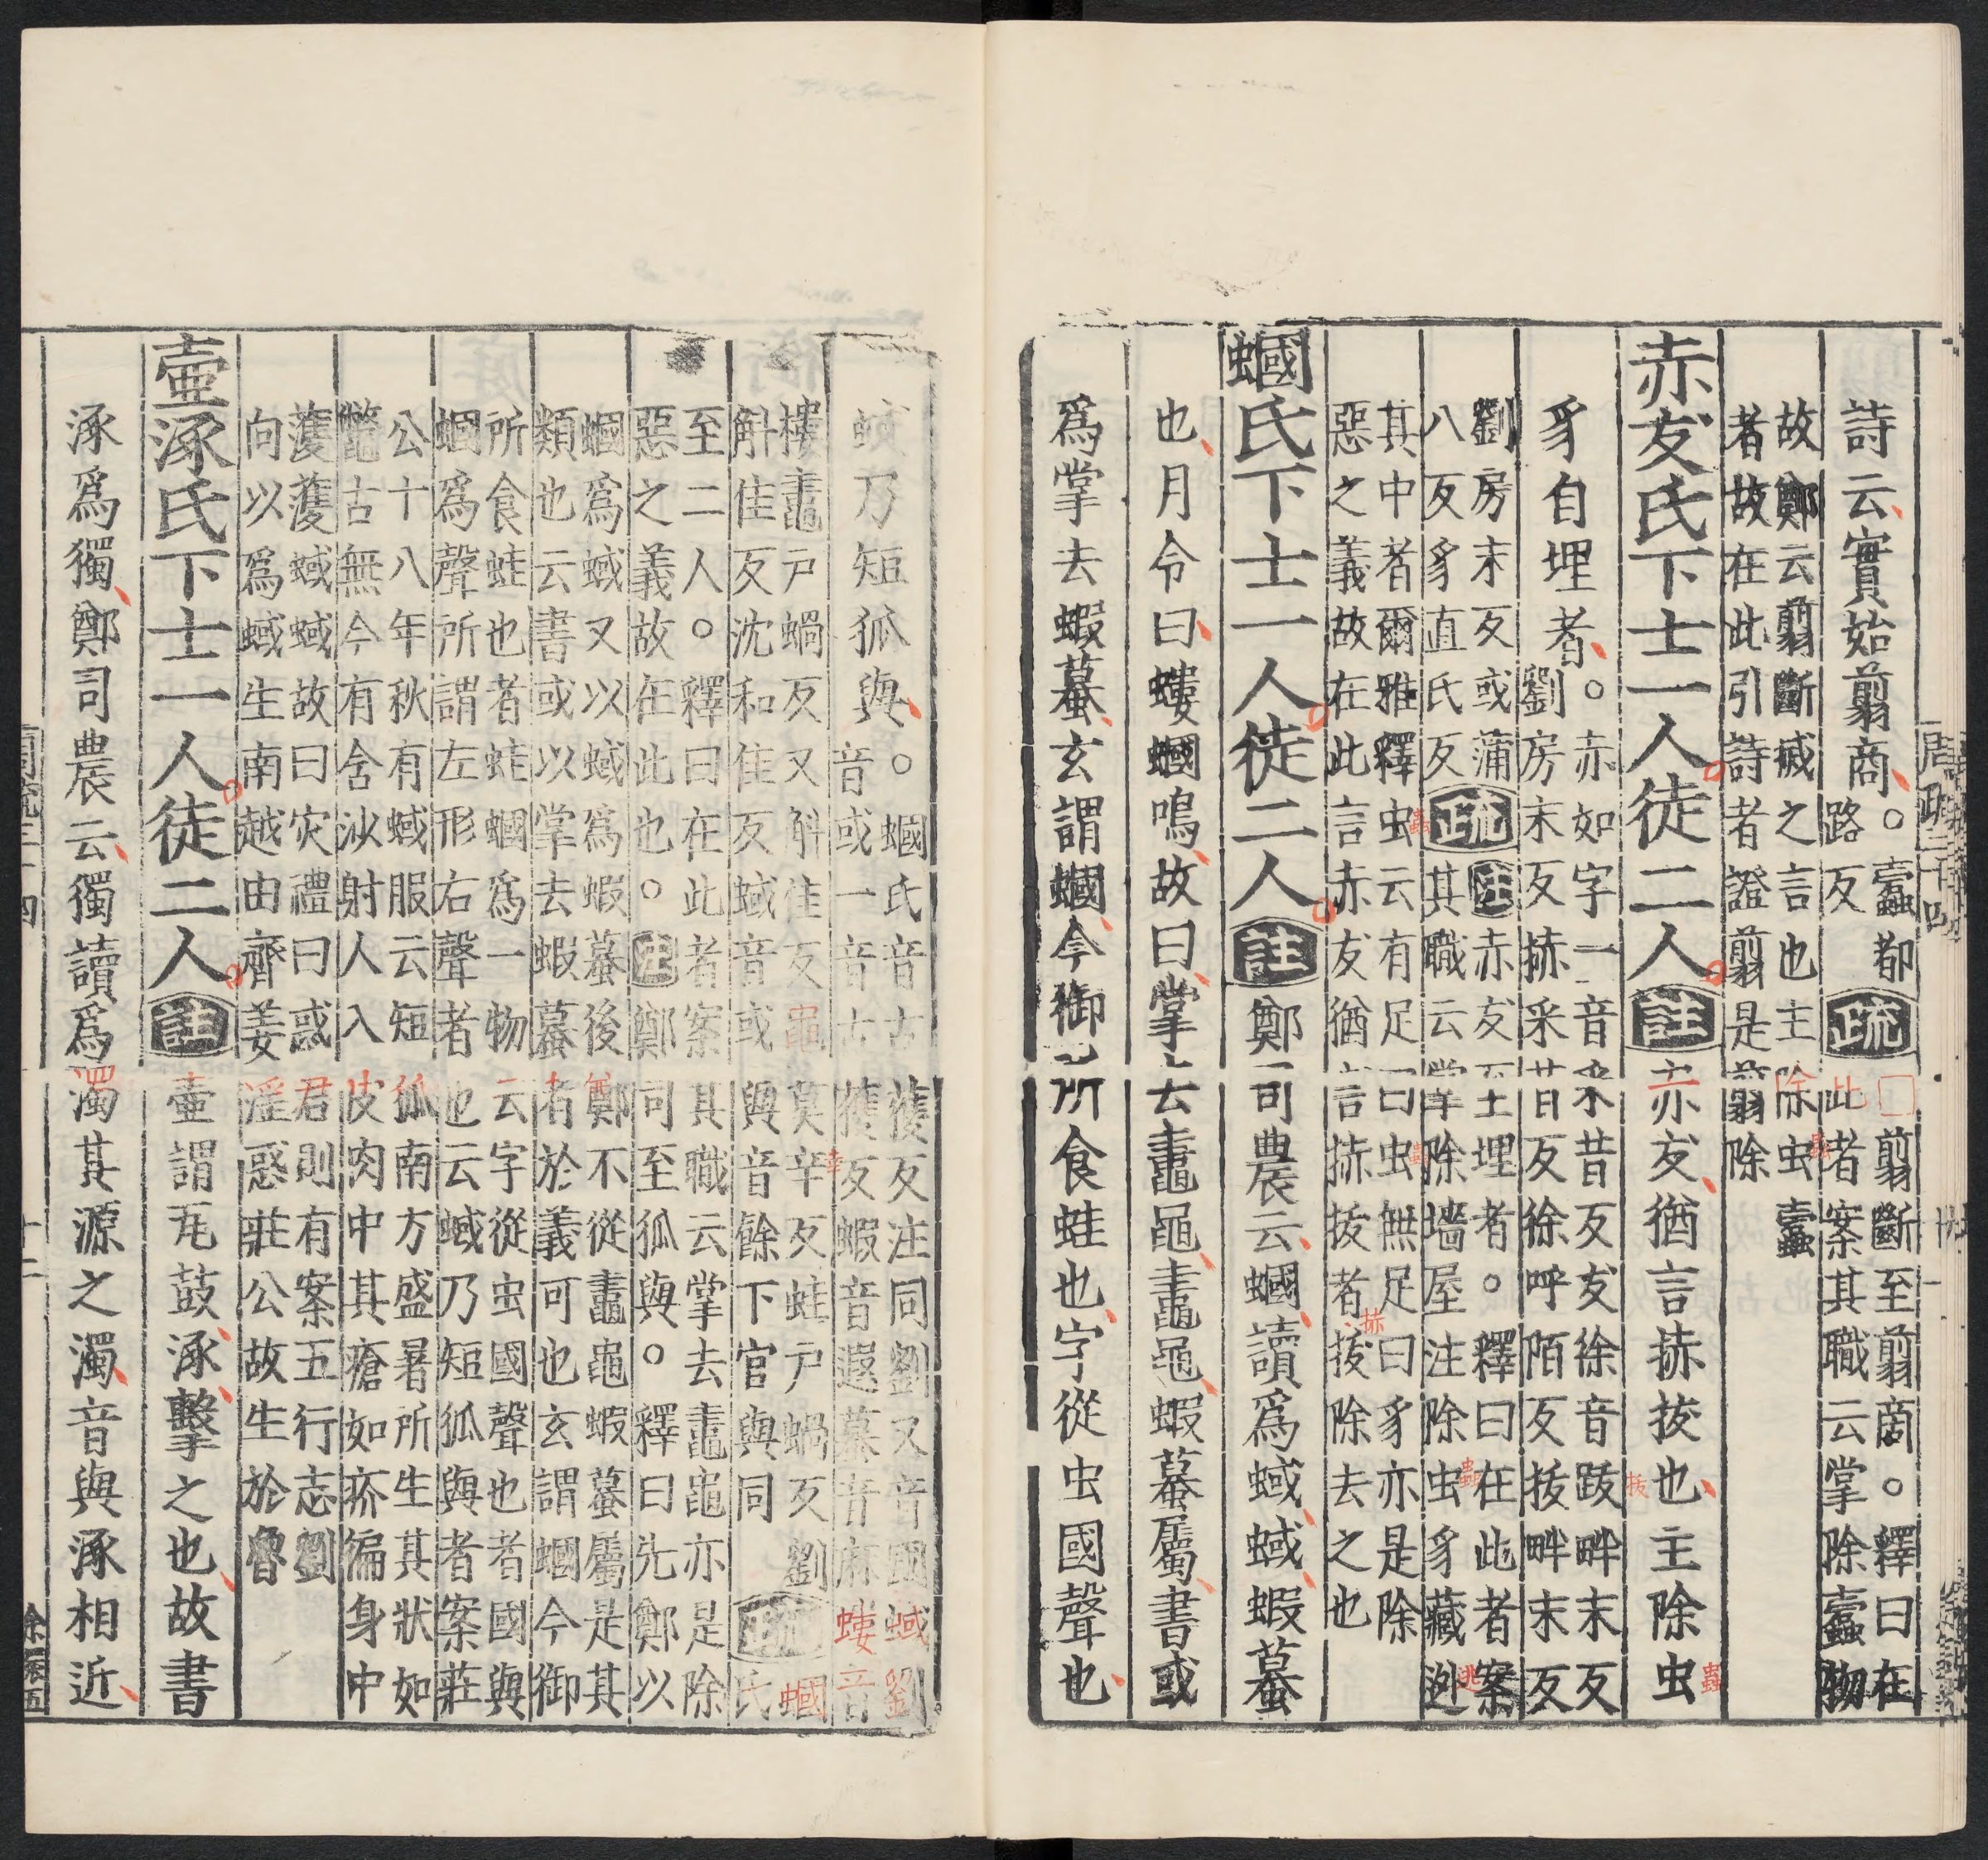 詩云實始翦商。蠹都
路反疏□翦斷至翦商。釋曰在
此者案其職云掌除蠹物
故鄭云翦斷滅之言也主除虫蠹
者故在此引詩者證翦是翦除
赤犮氏下士一人徒二人註赤犮猶言捇拔也主除虫
豸自埋者。赤如字一音采昔反犮徐音跋畔末反
劉房末反捇采昔反徐呼陌反拔畔末反
劉房末反或蒲
八反豸直氏反疏註赤犮至埋者。釋曰在此者案
其職云掌除墻屋注除虫豸藏逃
其中者爾雅釋虫云有足曰虫無足曰豸亦是除
惡之義故在此言赤犮猶言捇拔者拔除去之也
蟈氏下士一人徒二人註鄭司農云蟈讀爲蜮蜮蝦蟇
也月令曰螻蟈鳴故曰掌去鼃黽鼃黽蝦蟇屬書或
爲掌去蝦蟇玄謂蟈今御所食蛙也字從虫國聲也
蜮乃短狐與。蟈氏音古獲反注同劉又音國蜮劉
音或一音古獲反蝦音遐蟇音麻螻音
樓鼃戶蝸反又斛佳反黽莫辛反蛙戶蝸反劉
斛佳反沈和佳反蜮音或與音餘下官與同疏蟈氏
至二人。釋曰在此者案其職云掌去鼃黽亦是除
惡之義故在此也。註鄭司至狐與。釋曰先鄭以
蟈爲蜮又以蜮爲蝦蟇後鄭不從鼃黽蝦蟇屬是其
類也云書或以掌去蝦蟇者於義可也玄謂蟈今御
所食蛙也者蛙蟈爲一物云字從虫國聲也者國與
蟈爲聲所謂左形右聲者也云蜮乃短狐與者案莊
公十八年秋有蜮服云短狐南方盛暑所生其狀如
鼈古無今有含沙射人入皮肉中其瘡如疥徧身中
濩濩蜮蜮故曰灾禮曰惑君則有案五行志劉
向以爲蜮生南越由齊姜淫惑莊公故生於魯
壷涿氏下士一人徒二人註壷謂瓦鼓涿擊之也故書
涿爲獨鄭司農云獨讀爲濁其源之濁音與涿相近